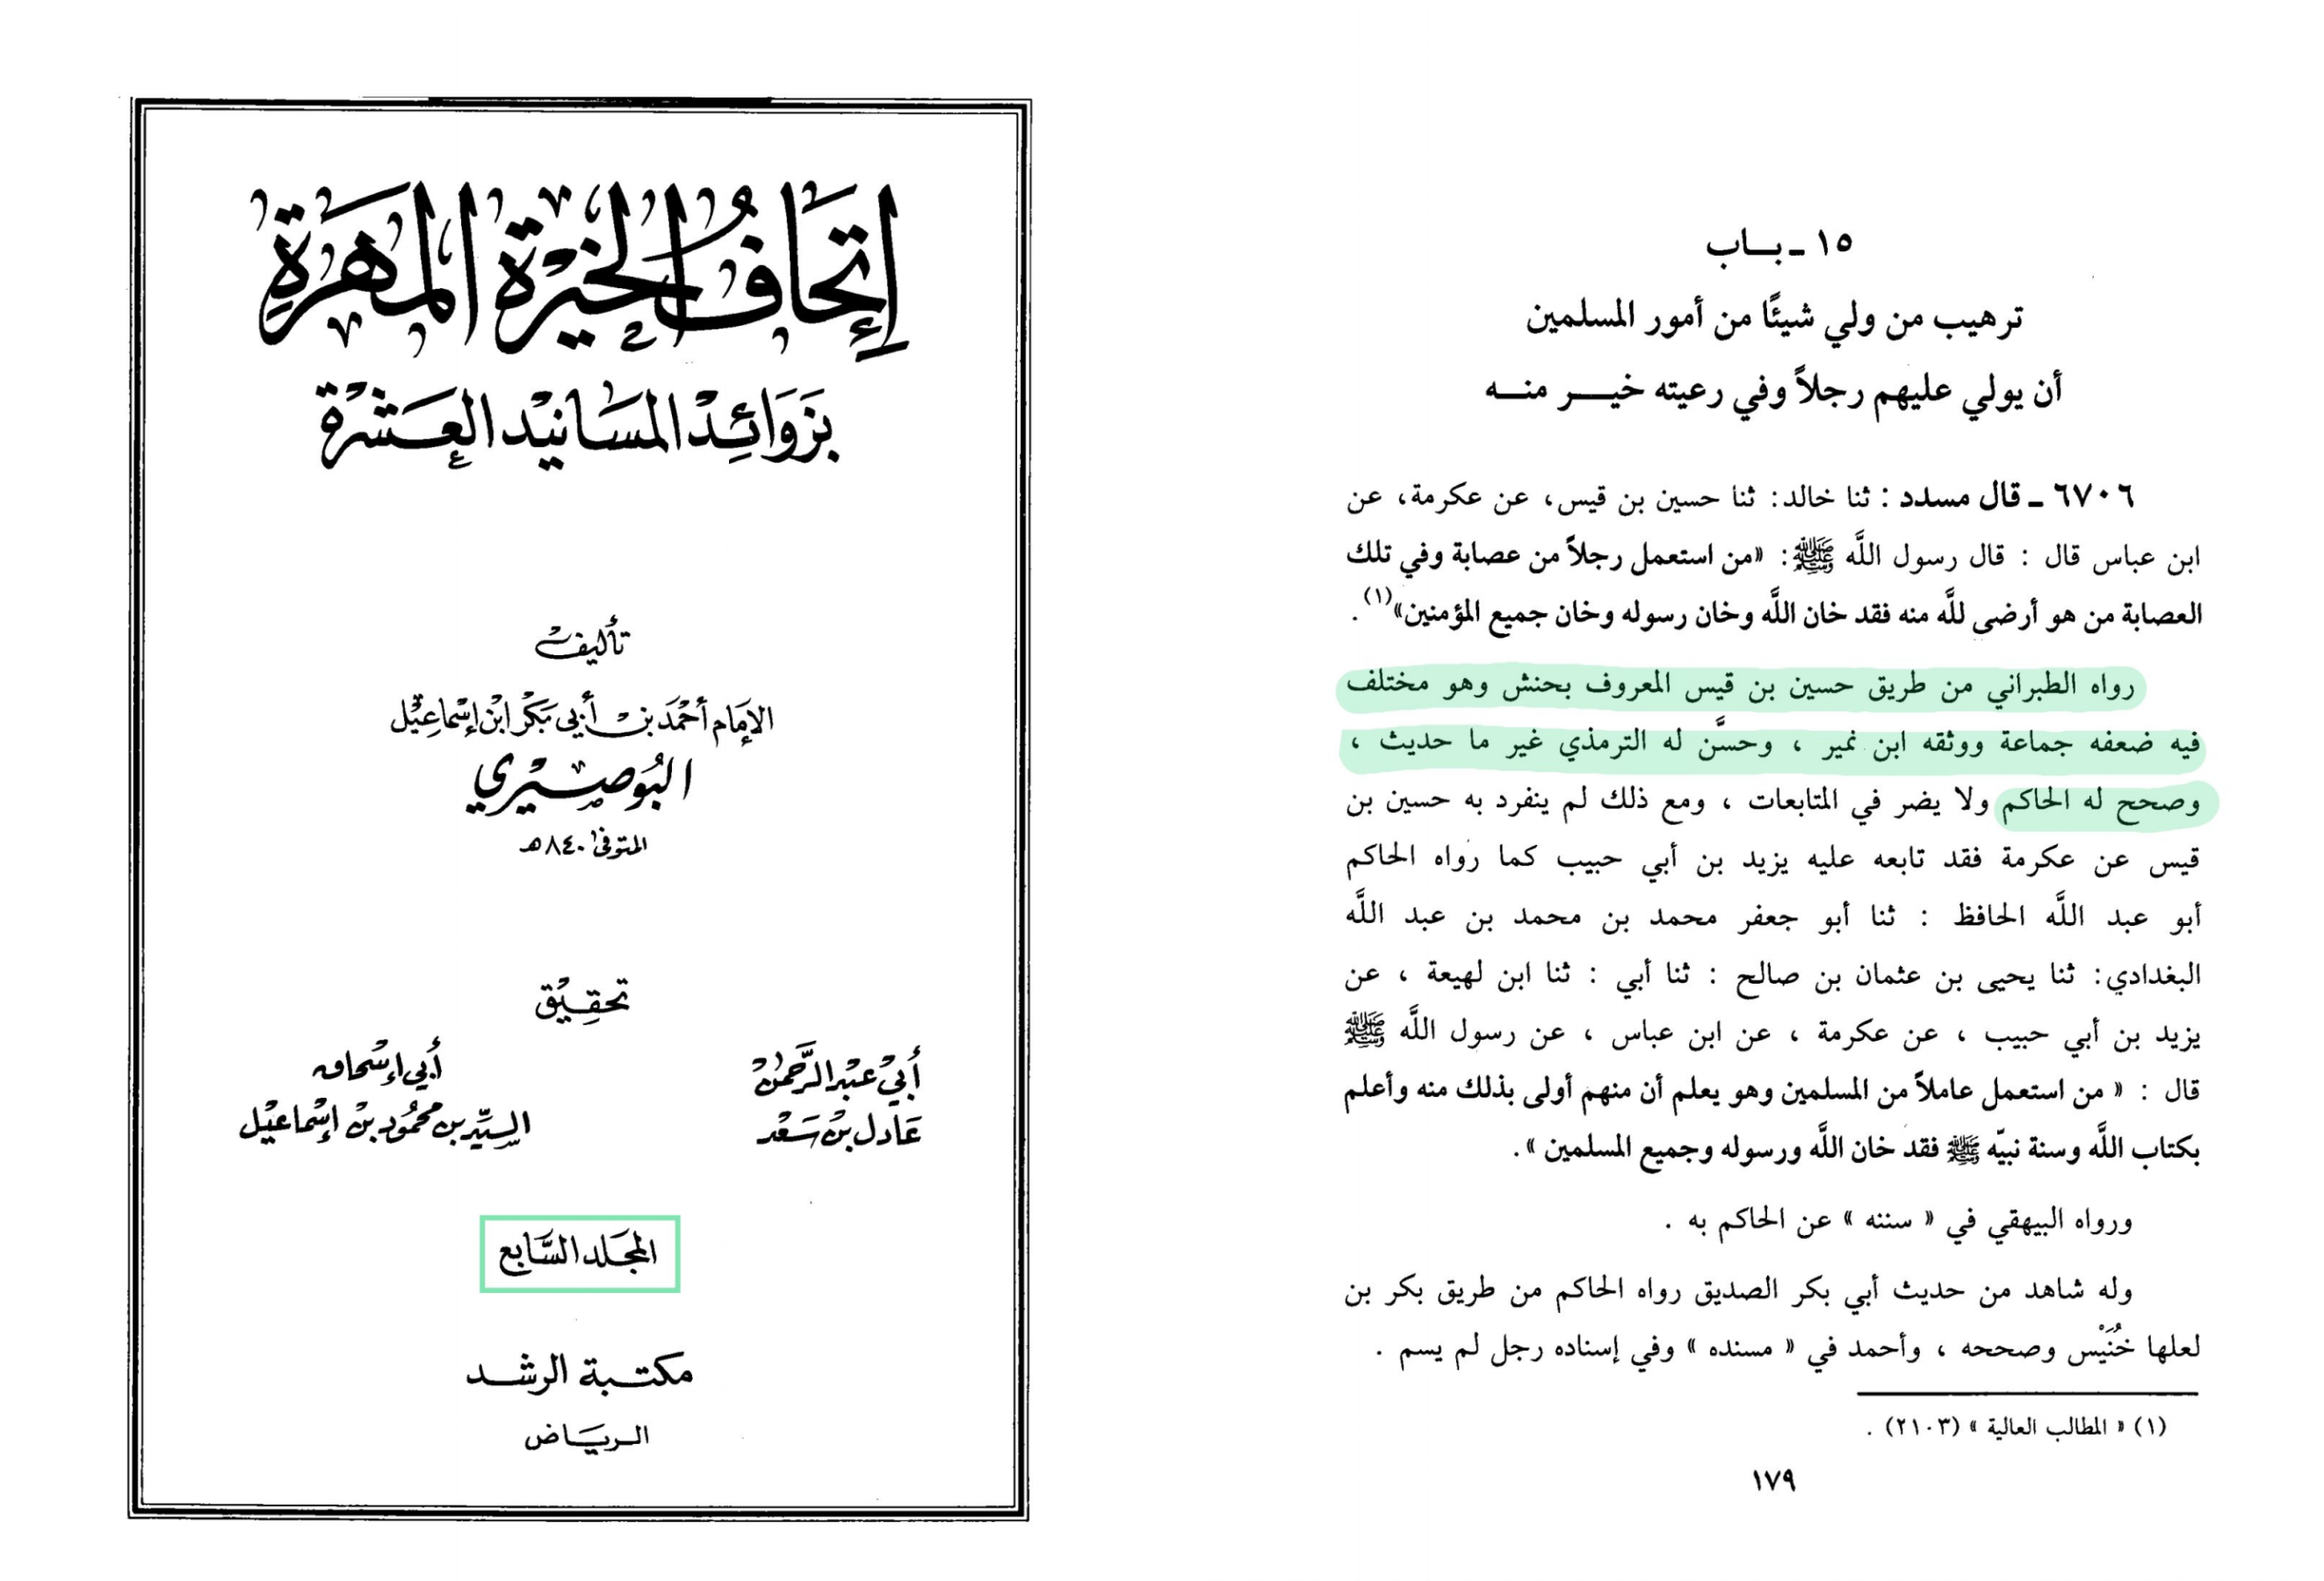 إتحاف الخيرة المهرة
بزوائد المسانيد العشرة
تأليف
الإمام أحمد بن أبي بكر ابن إسماعيل
البوصيري
المتوفى ٨٤٠هـ
تحقيق
أبي عبد الرحمن
عادل بن سعد
أبي إسحاق
السيد بن محمود بن إسماعيل
المجلد السابع
مكتبة الرشد
الرياض
١٥ - باب
ترهيب من ولي شيئًا من أمور المسلمين
أن يولي عليهم رجلاً وفي رعيته خير منه
٦٧٠٦ - قال مسدد : ثنا خالد: ثنا حسين بن قيس، عن عكرمة، عن
ابن عباس قال : قال رسول اللَّه ﷺ: «من استعمل رجلاً من عصابة وفي تلك
العصابة من هو أرضى للَّه منه فقد خان اللَّه وخان رسوله وخان جميع المؤمنين»(١).
رواه الطبراني من طريق حسين بن قيس المعروف بحنش وهو مختلف
فيه ضعفه جماعة ووثقه ابن نمير ، وحسَّن له الترمذي غير ما حديث ،
وصحح له الحاكم ولا يضر في المتابعات ، ومع ذلك لم ينفرد به حسين بن
قيس عن عكرمة فقد تابعه عليه يزيد بن أبي حبيب كما رواه الحاكم
أبو عبد اللَّه الحافظ : ثنا أبو جعفر محمد بن محمد بن عبد اللَّه
البغدادي: ثنا يحيى بن عثمان بن صالح : ثنا أبي : ثنا ابن لهيعة ، عن
يزيد بن أبي حبيب ، عن عكرمة ، عن ابن عباس ، عن رسول اللَّه ﷺ
قال : « من استعمل عاملاً من المسلمين وهو يعلم أن منهم أولى بذلك منه وأعلم
بكتاب اللَّه وسنة نبيّه ﷺ فقد خان اللَّه ورسوله وجميع المسلمين ».
ورواه البيهقي في « سننه » عن الحاكم به .
وله شاهد من حديث أبي بكر الصديق رواه الحاكم من طريق بكر بن
لعلها خُنَيْس وصححه ، وأحمد في « مسنده » وفي إسناده رجل لم يسم .
(١) « المطالب العالية » (٢١٠٣) .
١٧٩